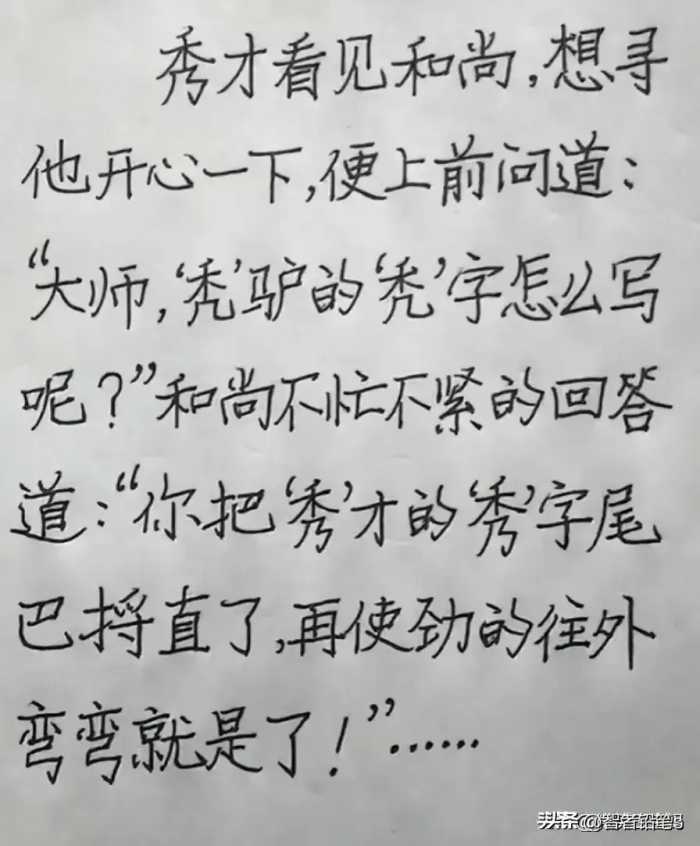 秀才看见和尚,想寻
他开心一下,便上前问道:
“大师,‘秃’驴的‘秃’字怎么写
呢?”和尚不忙不紧的回答
道:“你把‘秀’才的‘秀’字尾
巴捋直了,再使劲的往外
弯弯就是了!”……
头条@智者铅笔